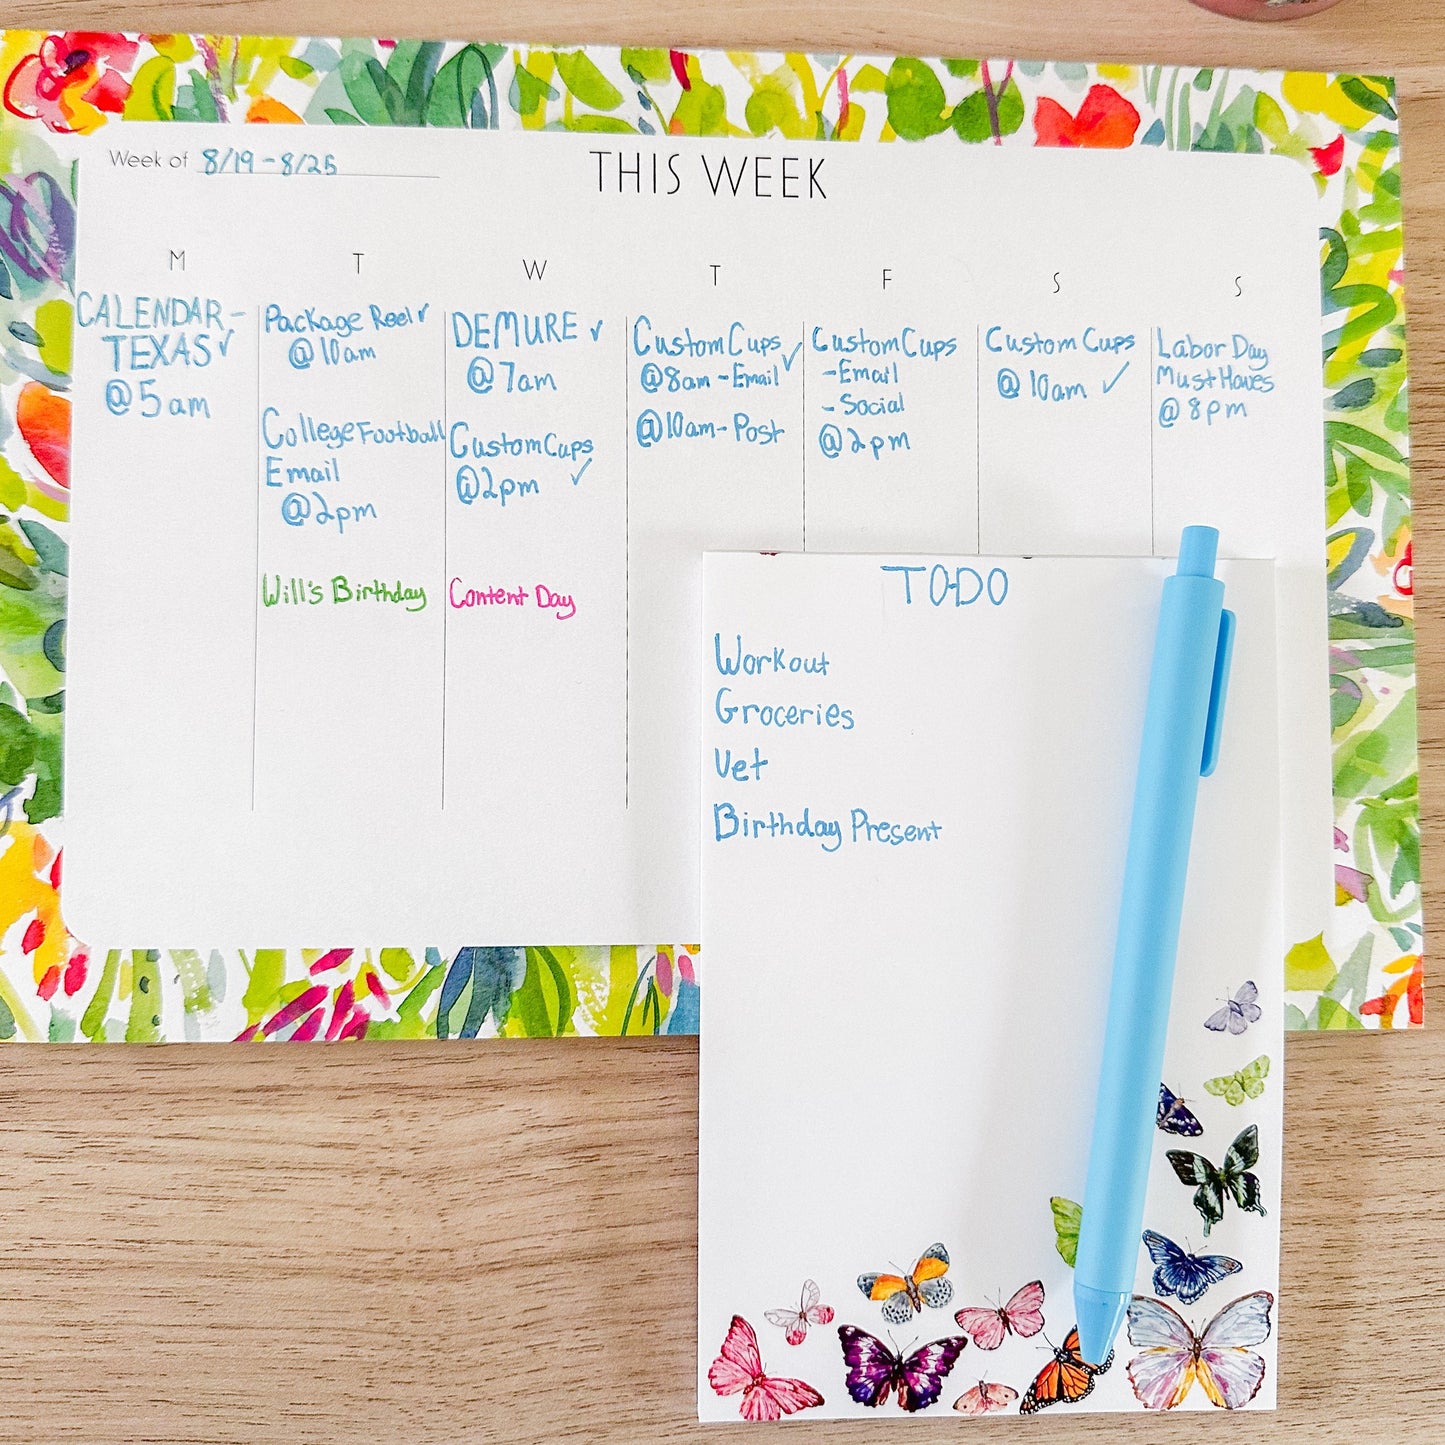 Week of 8/19-8/25
THIS WEEK
M
T
W
T
F
S
S
CALENDAR-
TEXAS✓
@5am
Package Reel✓
@10am
College Football
Email
@2pm
Will's Birthday
DEMURE ✓
@7am
Custom Cups
@2pm ✓
Content Day
Custom Cups
@8am-Email✓
@10am-Post
Custom Cups
-Email
-Social
@2pm
Custom Cups
@10am ✓
Labor Day
Must Haves
@8pm
TO-DO
Workout
Groceries
Vet
Birthday Present